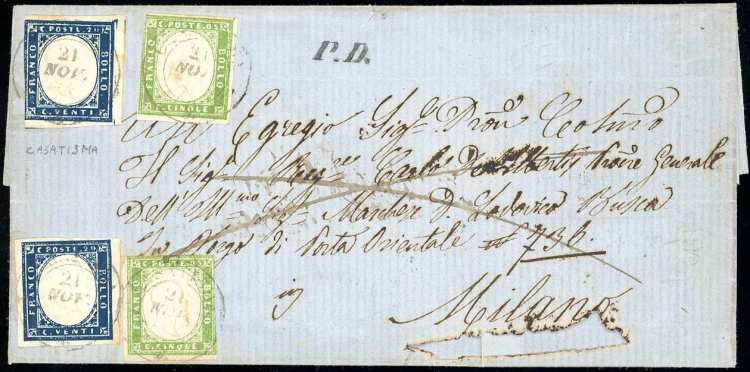 C. POSTE. 20
FRANCO
BOLLO
C. VENTI
21
NOV.
C. POSTE. 05
FRANCO
BOLLO
C. CINQUE
21
NOV.
P.D.
CASATISMA
Egregio Sig.e Pron
Il Sig. Carlo De Alberti Prore Generale
Dell'Ill.mo Sig. Marchese D. Lodovico Busca
Borgo di Porta Orientale N 736.
in
Milano
C. POSTE. 20
FRANCO
BOLLO
C. VENTI
21
NOV.
C. POSTE. 05
FRANCO
BOLLO
C. CINQUE
21
NOV.